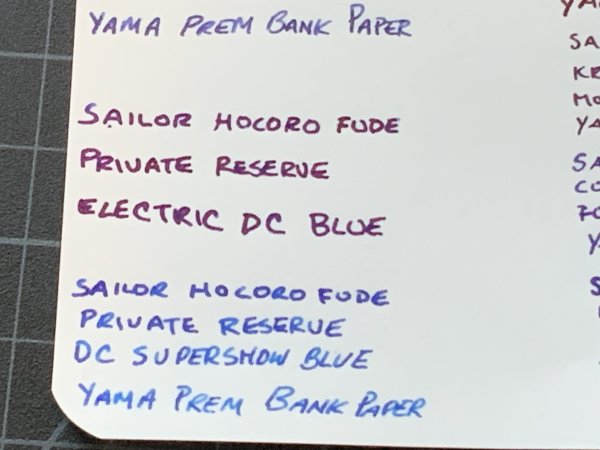 YAMA PREM BANK PAPER
SAILOR HOCORO FUDE
PRIVATE RESERVE
ELECTRIC DC BLUE
SAILOR HOCORO FUDE
PRIVATE RESERVE
DC SUPERSHOW BLUE
YAMA PREM BANK PAPER